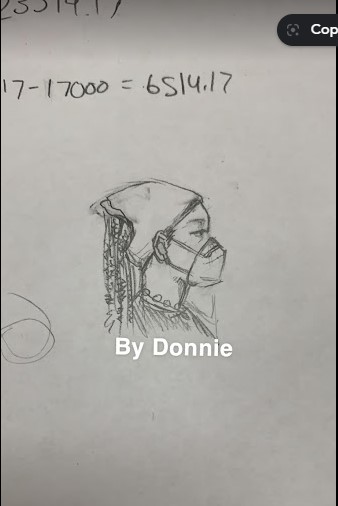 Cop
23514.17
17-17000 = 6514.17
By Donnie